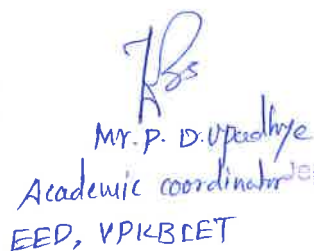 Mr. P. D. Upadhye
Academic coordinator
EED, VPKBIET